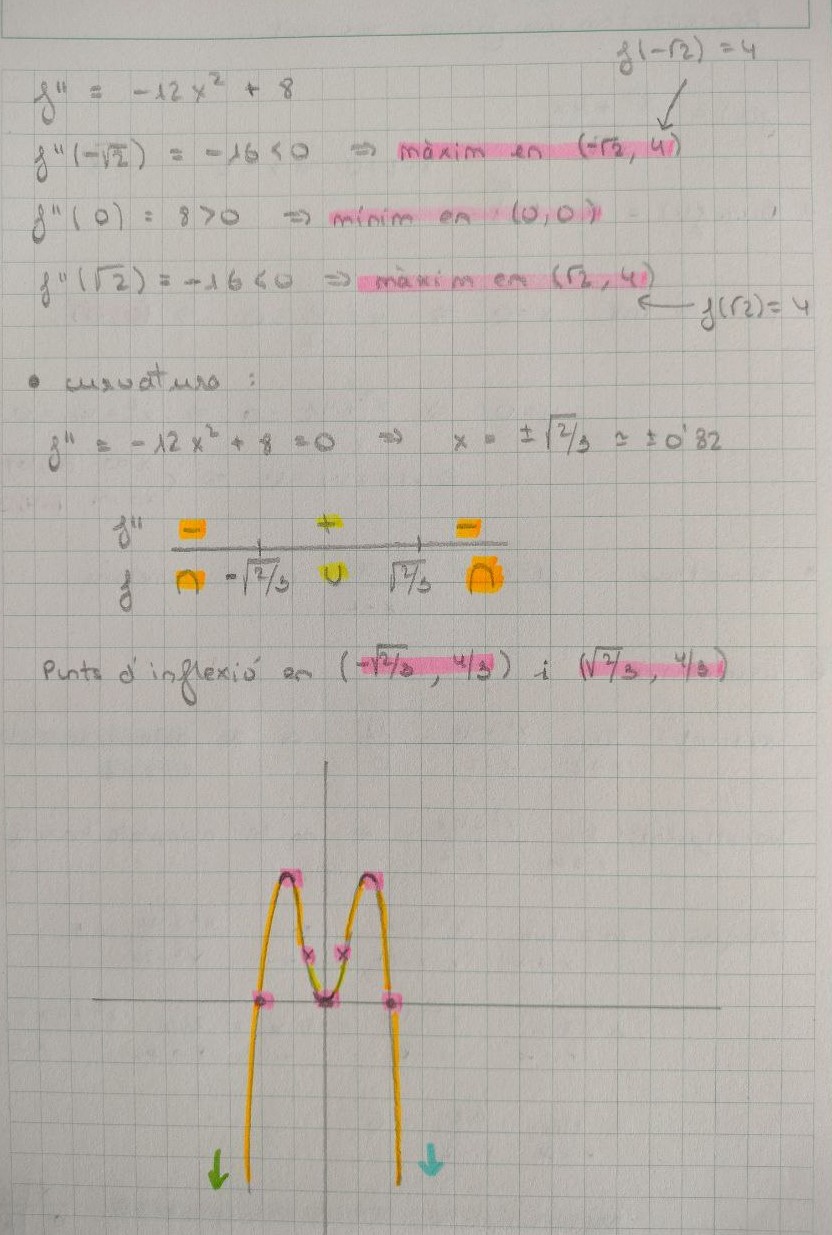 f(-√2) = 4
f'' = -12x² + 8
f''(-√2) = -16 < 0 ⇒ màxim en (-√2, 4)
f''(0) = 8 > 0 ⇒ mínim en (0,0)
f''(√2) = -16 < 0 ⇒ màxim en (√2, 4)
f(√2) = 4
• curvatura :
f'' = -12x² + 8 = 0 ⇒ x = ±√2/3 ≃ ±0'82
f'' - + -
f ∩ -√2/3 ∪ √2/3 ∩
Punts d'inflexió en (-√2/3, 4/3) i (√2/3, 4/3)